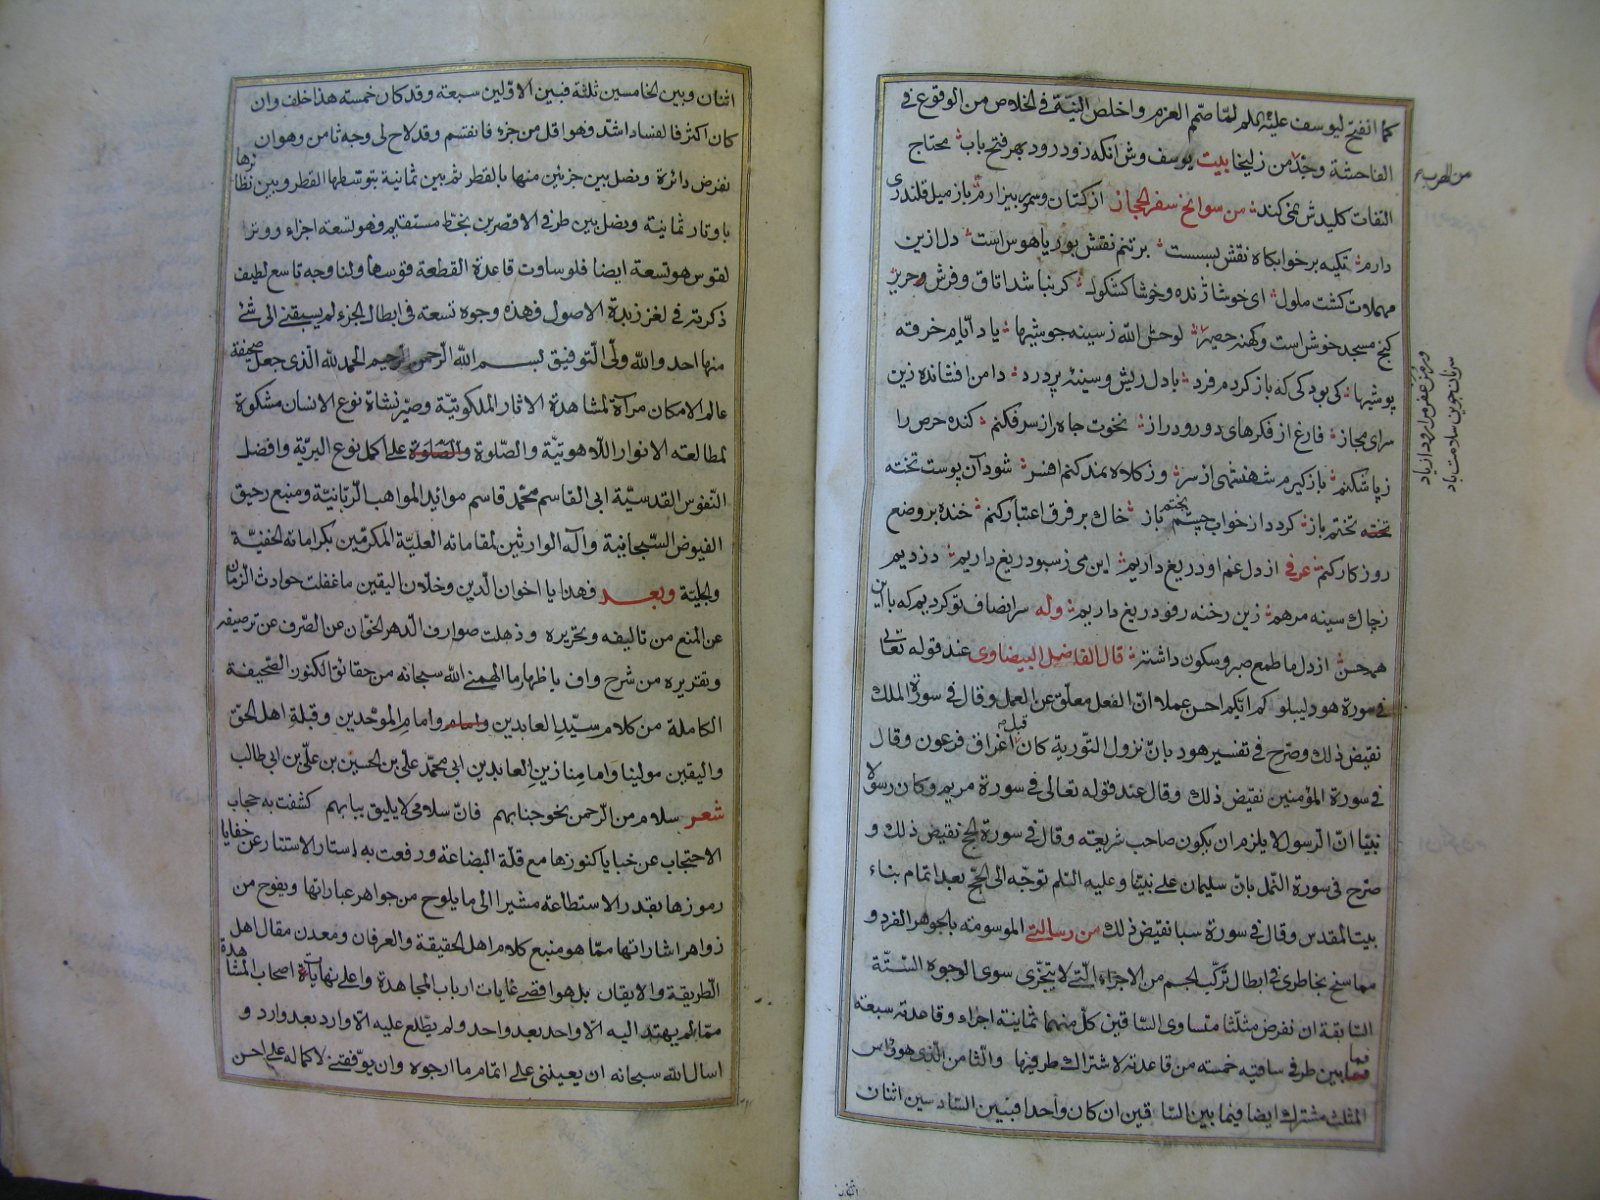 كما انفتح ليوسف عليه السلم لمّا صمّم العزم واخلص النيّة في الخلاص من الوقوع في
الفاحشة وجذّ من زليخا بيت يوسف وش انكه زود رود بهر فتح باب محتاج
التفات كليدش نمى كند من سوانح سفر الحجاز از كتان وسمور بيزارم باز ميل قلندرى
دارم تكيه بر خوابكاه نقش ببست بر تنم نقش بوريا هوس است دل ازين
مهملات كشت ملول اى خوشا ژنده وخوشا كشكول كر نباشد اتاق وفرش وحرير
كنج مسجد خوش است وكهنه حصير لوحش الله زسينه جوشيها ياد ايام خرقه
پوشيها كى بود كى كه باز كردم فرد با دل ريش وسينه پر درد دامن افشانده زين
سراى مجاز فارغ از فكرهاى دور ودراز نخوت جاه را ز سر فكنم كنده حرص را
زپا شكنم باز كيرم شهنشهى از سر وز كلاه نمد كنم افسر شود آن پوست تخته
تختم باز كردد از خواب چشم بختم باز خاك بر فرق اعتبار كنم خنده بر وضع
روزكار كنم عرفى از دل غم او دريغ داريم اين مى زسبو دريغ داريم دزديم
زچاك سينه مرهم زين رخنه رفو دريغ داريم وله سر انصاف تو كرديم كه با اين
همه حسن از دل ما طمع صبر وسكون داشتن قال الفاضل البيضاوى عند قوله تعالى
في سورة هود ليبلوكم ايّكم احسن عملا انّ الفعل معلّق عن العمل وقال في سورة الملك
نقيض ذلك وصرّح في تفسير هود بانّ نزول التّورية كان قبل اغراق فرعون وقال
في سورة المؤمنين نقيض ذلك وقال عند قوله تعالى في سورة مريم وكان رسولا
نبيّا انّ الرسول لا يلزم ان يكون صاحب شريعته وقال في سورة الحج نقيض ذلك و
صرّح في سورة النّمل بانّ سليمان على نبيّنا وعليه السّلم توجّه الى الحجّ بعد اتمام بناء
بيت المقدس وقال في سورة سبا نقيض ذلك من رسالتى الموسومة بالجوهر الفرد و
مما سنح بخاطرى في ابطال تركّب الجسم من الاجزاء الّتى لا يتجزّى سوى الوجوه الستّة
السّابقة ان نفرض مثلّثا متساوى السّاقين كلّ منهما ثمانية اجزاء وقاعدته سبعة
فما بين طرفى ساقيه خمسة من قاعدته لاشتراك طرفيها والثامن الّذى هو راس
المثلث مشترك ايضا فيما بين السّاقين ان كان واحدا فبين السّادسين اثنان
من الهرب
سرنان جوين سلامت باد
اثنان وبين الخامسين ثلثة فبين الاوّلين سبعة وقد كان خمسة هذا خلف وان
كان اكثر فالفساد اشدّ وهو اقل من جزء فانقسم وقد لاح لى وجه ثامن وهو ان
نفرض دائرة ونصل بين جزئين منها بالقطر ثم بين ثمانية بتوسّطها القطر وبين نظائرها
باوتار ثمانية ونصل بين طرفى الاقصرين بخطّ مستقيم وهو تسعة اجزاء ووترا
لقوس هو تسعة ايضا فلو ساوت قاعدة القطعة قوسها ولنا وجه تاسع لطيف
ذكرته في لغز زبدة الاصول فهذه وجوه تسعة في ابطال الجزء لم يسبقنى الى شئ
منها احد والله ولى التوفيق بسم الله الرّحمن الرّحيم الحمد لله الّذى جعل صحيفة
عالم الامكان مرآة لمشاهدة الاثار الملكوتيّة وصيّر نشاة نوع الانسان مشكوة
لمطالعة الانوار اللّاهوتيّة والصّلوة والصّلوة على اكمل نوع البريّة وافضل
النّفوس القدسيّة ابى القاسم محمّد قاسم موائد المواهب الرّبّانيّة ومنبع رحيق
الفيوض السّبحانية وآله الوارثين لمقاماته العليّة المكرمين بكراماته الخفيّة
والجليّة وبعد فهذا يا اخوان الدّين وخلّان اليقين ما غفلت حوادث الزّمان
عن المنع من تاليفه وتحريره وذهلت صوارف الدّهر الخوّان عن الصّرف عن ترصيفه
وتقريره من شرح واف باظهار ما الهمنى الله سبحانه من حقائق الكنون الصّحيفة
الكاملة من كلام سيّد العابدين وامام وامام الموحّدين وقبلة اهل الحقّ
واليقين مولينا وامامنا زين العابدين ابى محمّد على بن الحسين بن على بن ابى طالب
شعر سلام من الرّحمن نحو جنابهم فانّ سلامى لا يليق ببابهم كشفت به حجاب
الاحتجاب عن خبايا كنوزها مع قلّة البضاعة ورفعت به استار الاستتار عن خفايا
رموزها بقدر الاستطاعة مشيرا الى ما يلوح من جواهر عباراتها ويفوح من
زواهر اشاراتها ممّا هو منبع كلام اهل الحقيقة والعرفان ومعدن مقال اهل
الطّريقة والايقان بل هو اقصى غايات ارباب المجاهدة واعلى نهاية اصحاب المشاهدة
ممّا لم يهتد اليه الّا واحد بعد واحد ولم يطّلع عليه الّا وارد بعد وارد و
اسال الله سبحانه ان يعيننى على اتمام ما ارجوه وان يوفّقنى لاكماله على احسن